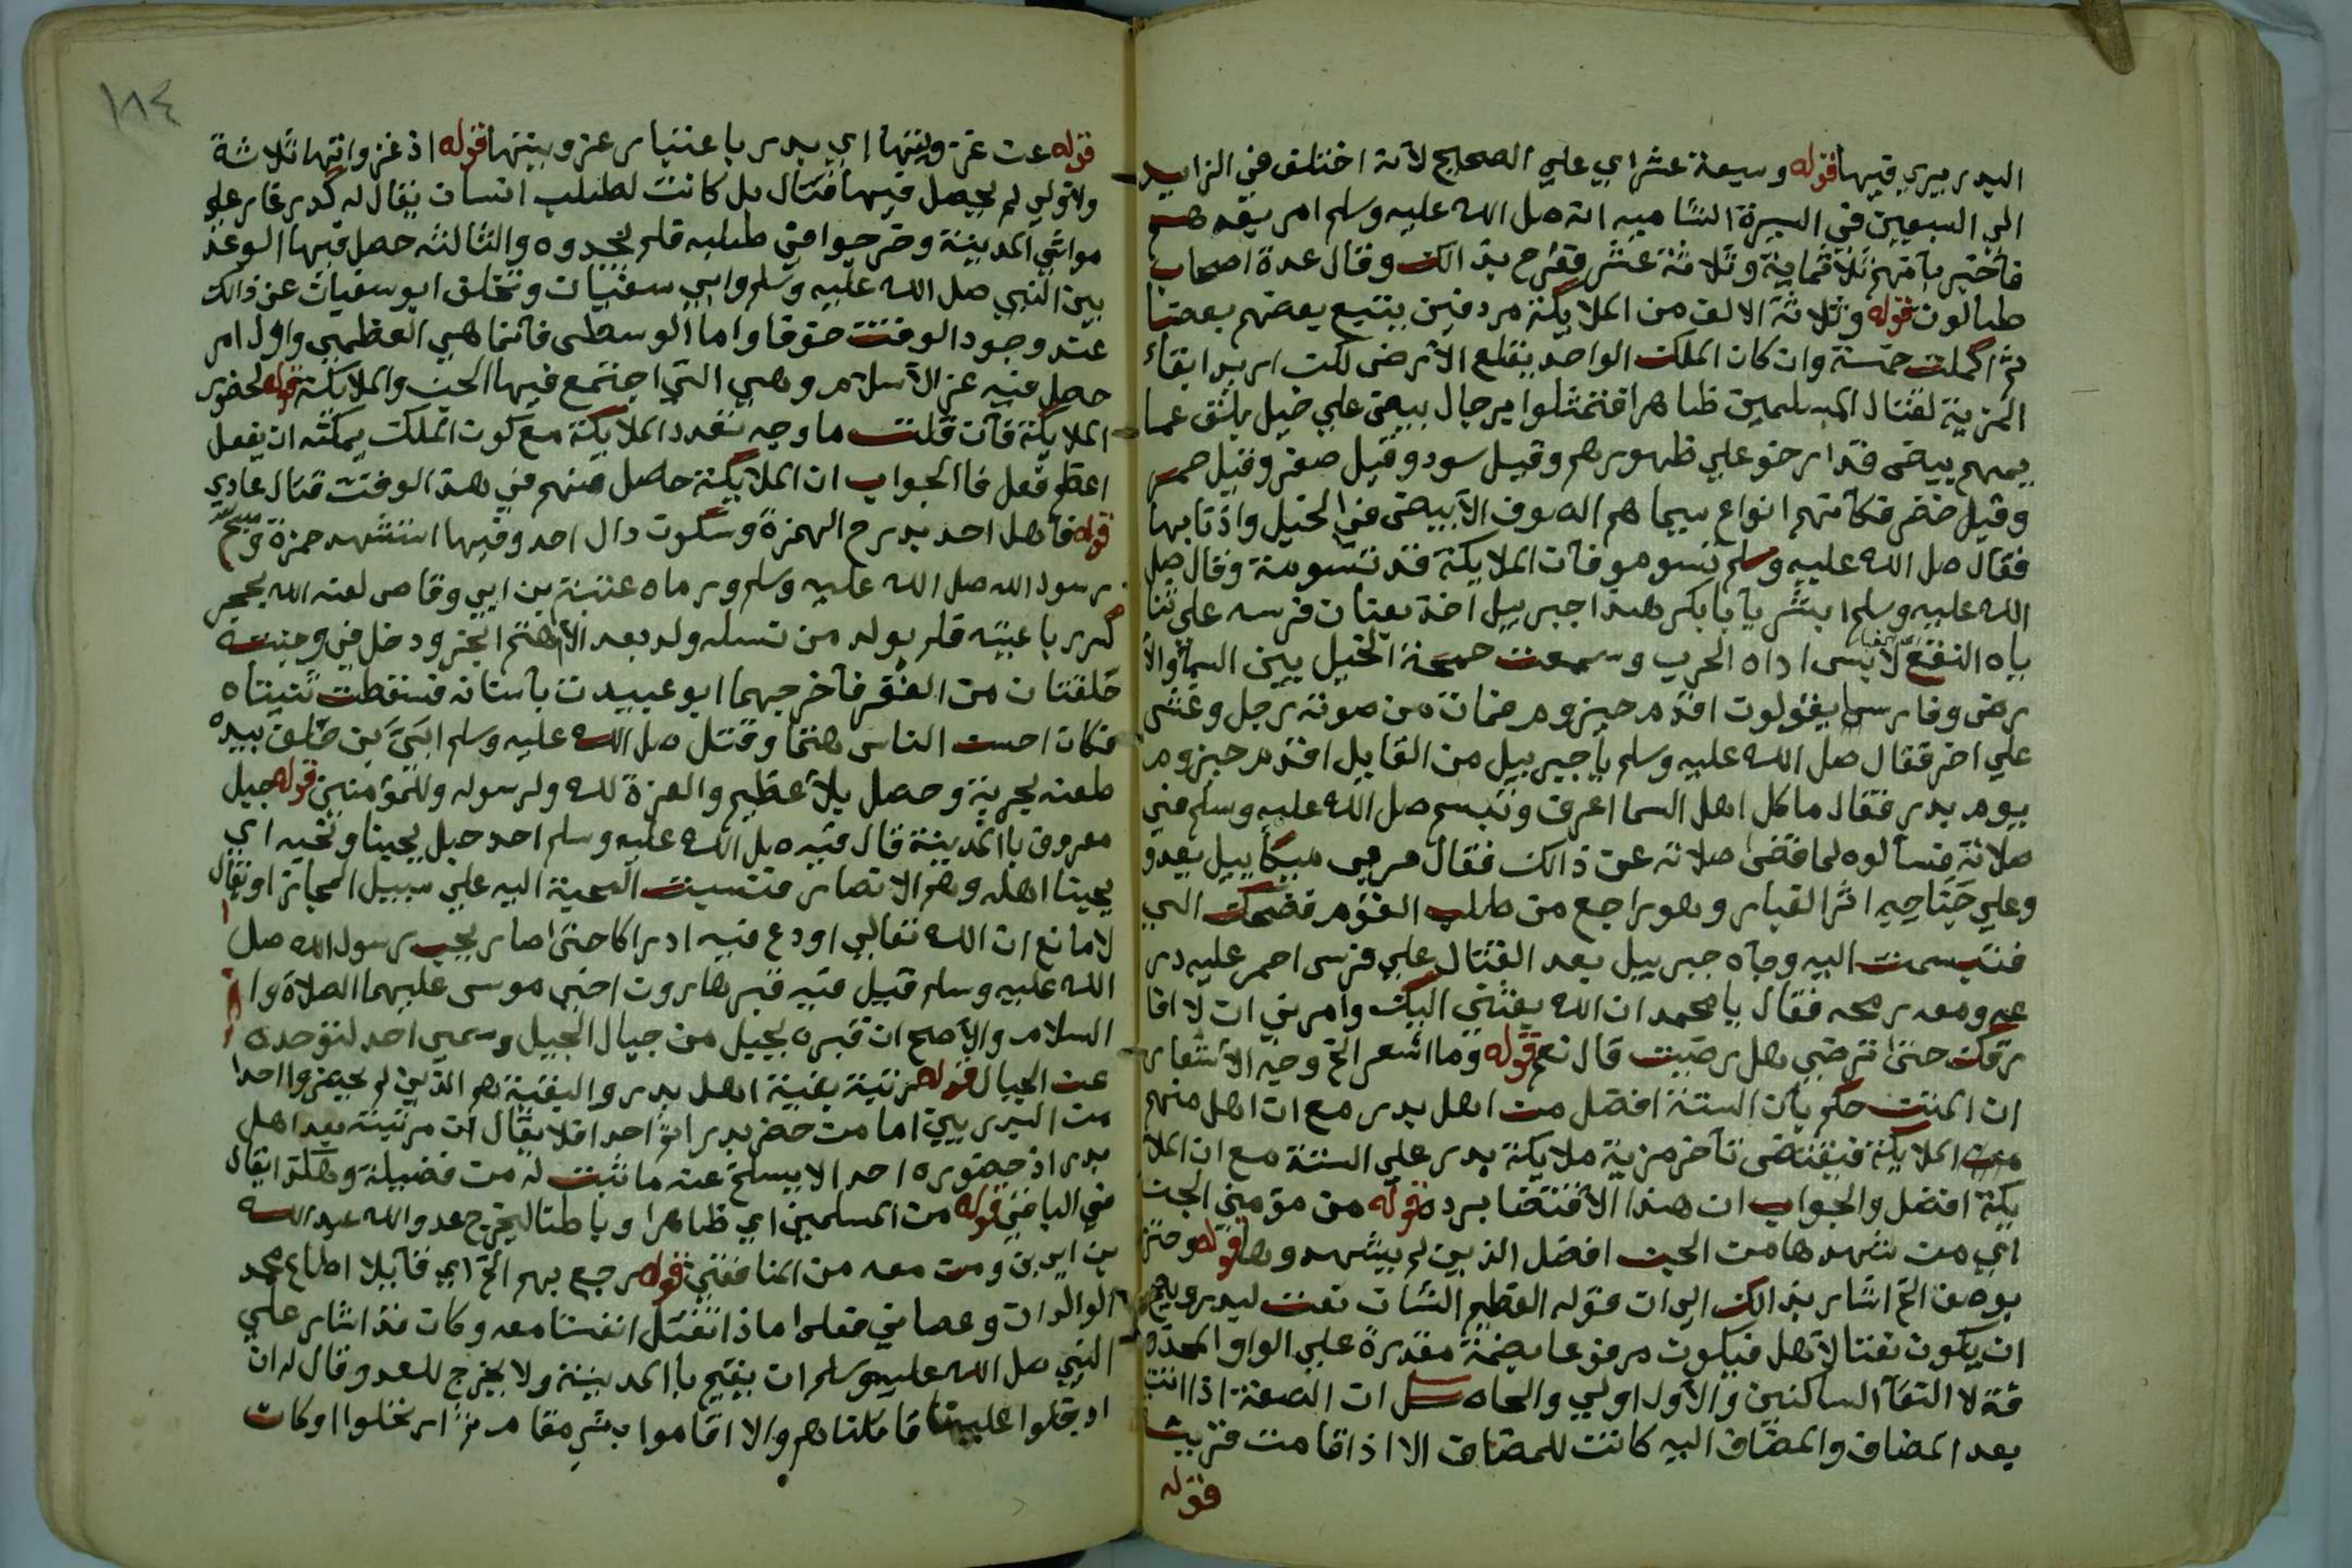 البدر بيري فيها قوله وسبعة عشر اي علي الصحيح لانه اختلف في الزايد
الي السبعين في السيرة الشاميه انه صل الله عليه وسلم امر بعدهم
فاخبر بانهم ثلاثماية وثلاثة عشر ففرح بذالك وقال عدة اصحاب
طالوت قوله وثلاثة الالف من الملايكة مردفين يتبع بعضهم بعضا
ثم اكملت خمسة وان كان الملك الواحد يقلع الارض لكن اريد ابقاء
المزية لقتال المسلمين ظاهرا فتمثلوا برجال بيض علي خيل بلق عما
يمهم بيض قد ارخو علي ظهورهم وقيل سود وقيل صفر وقيل حمر
وقيل خضر فكانهم انواع سيماهم الصوف الابيض في الخيل واذنابها
فقال صل الله عليه وسلم تسوموا فان الملايكة قد تسومة وقال صل
الله عليه وسلم ابشر يا بابكر هدا جبريل اخذ بعنان فرسه علي ثنا
ياه النقع لابس اداه الحرب وسمعت حمحمة الخيل بين السما والا
رض وفارسها يقولون اقدم حيزوم فمات من صوته رجل وغشي
علي اخر فقال صل الله عليه وسلم يا جبريل من القايل اقدم حيزوم
يوم بدر فقال ما كل اهل السما اعرف وتبسم صل الله عليه وسلم في
صلاته فسالوه لما قضي صلاته عن ذالك فقال مر بي ميكاييل بعدو
وعلي جناحيه اثر الغبار وهو راجع من طلب القوم فضحك الي
فتبسمت اليه وجاه جبرييل بعد القتال علي فرس احمر عليه در
عه ومعه رمحه فقال يا محمد ان الله بعثني اليك وامرني ان لا افا
رقك حتي ترضي هل رضيت قال نعم قوله وما اشعر الخ وجه الاشعار
ان المتن حكم بان الستة افضل من اهل بدر مع ان اهل منهم
من الملايكة فيقتضي تاخر مزية ملايكة بدر علي الستة مع ان الملا
يكة افضل والجواب ان هذا الاقتضا يرده قوله من مؤمني الجن
اي من شهدها من الجن افضل الذين لم يشهدوها قوله وجز
بوصف الخ اشار بذالك الي ان قوله العظيم الشان نعت لبدر ويصح
ان يكون نعتا لاهل فيكون مرفوعا بضمة مقدرة علي الواو المحذو
فة لا التقآ الساكنين والاول اولي والحاصل ان الصفة اذا اتت
بعد المضاف والمضاف اليه كانت للمضاف الا اذا قامت قرينة
قوله
١٨٤
قوله عن غزوتها اي بدر باعتبار غزوتها قوله اذ غزواتها ثلاثة
ولاولي لم يحصل فيها قتال بل كانت لطلب انسان يقال له كدر غار علي
مواشي المدينة وخرجوا في طلبه فلم يجدوه والثالثه حصل فيها الوعد
بين النبي صل الله عليه وسلم وابي سفيان وتخلف ابو سفيان عن ذالك
عند وجود الوقت خوفا واما الوسطي فانما هي العظمي واول امر
حصل فيه عز الاسلام وهي التي اجتمع فيها الجن والملايكة قوله لحضور
الملايكة فان قلت ما وجه تعدد الملايكة مع كون الملك يمكنه ان يفعل
اعظم فعل فا الجواب ان الملايكة حاصل منهم في هذ الوقت قتال عادي
قوله فاهل احد بدرج الهمزة وسكون دال احد وفيها استشهد حمزة وشج
رسول الله صل الله عليه وسلم ورماه عتبة بن ابي وقاص لعنه الله بحجر
كسر رباعيته فلم يولد من نسله ولد بعد الا اهتم ابخر ودخل في وجنته
حلقتان من المغفر فاخرجهما ابو عبيدت باسنانه فسقطت ثنيتاه
فكان احسن الناس هتما وقتل صل الله عليه وسلم ابي بن خلف بيده
طعنه بحربة وحصل بلا عظيم والعزة لله ولرسوله وللمؤمنين قوله جبل
معروف با المدينة قال فيه صل الله عليه وسلم احد جبل يحبنا ونحبه اي
يحبنا اهله وهم الانصار فنسبت المحبة اليه علي سبيل المجاز او يقال
لا مانع ان الله تعالي اودع فيه ادراكا حتي صار يحب رسول الله صل
الله عليه وسلم قيل فيه قبر هارون اخي موسي عليهما الصلاة وا
السلام والاصح ان قبره بجبل من جبال الجبيل وسمي احد لتوحده
عن الجبال قوله مرتبة بقية اهل بدر والبقية هم الذين لم يحضروا احدا
من البدريين اما من حضر بدرا واحدا فلا يقال ان مرتبته بعد اهل
بدر اذ حضوره احد الا يسلخ عنه ما ثبت له من فضيلة وهكذا يقال
في الباقي قوله من المسلمين اي ظاهرا وباطنا ليخرج عدو الله عبد الله
بن ابي بن ومن معه من المنافقين قوله رجع بهم الخ اي قايلا اطاع محمد
الوالدان وعصاني فعلي ما ذا نقتل انفسنا معه وكان قد اشار علي
النبي صل الله عليه وسلم ان يقيم با المدينة ولا يخرج للعدو وقال له ان
ادخلوا علينا قاتلناهم والا اقاموا بشر مقام ثم ارتحلوا وكان